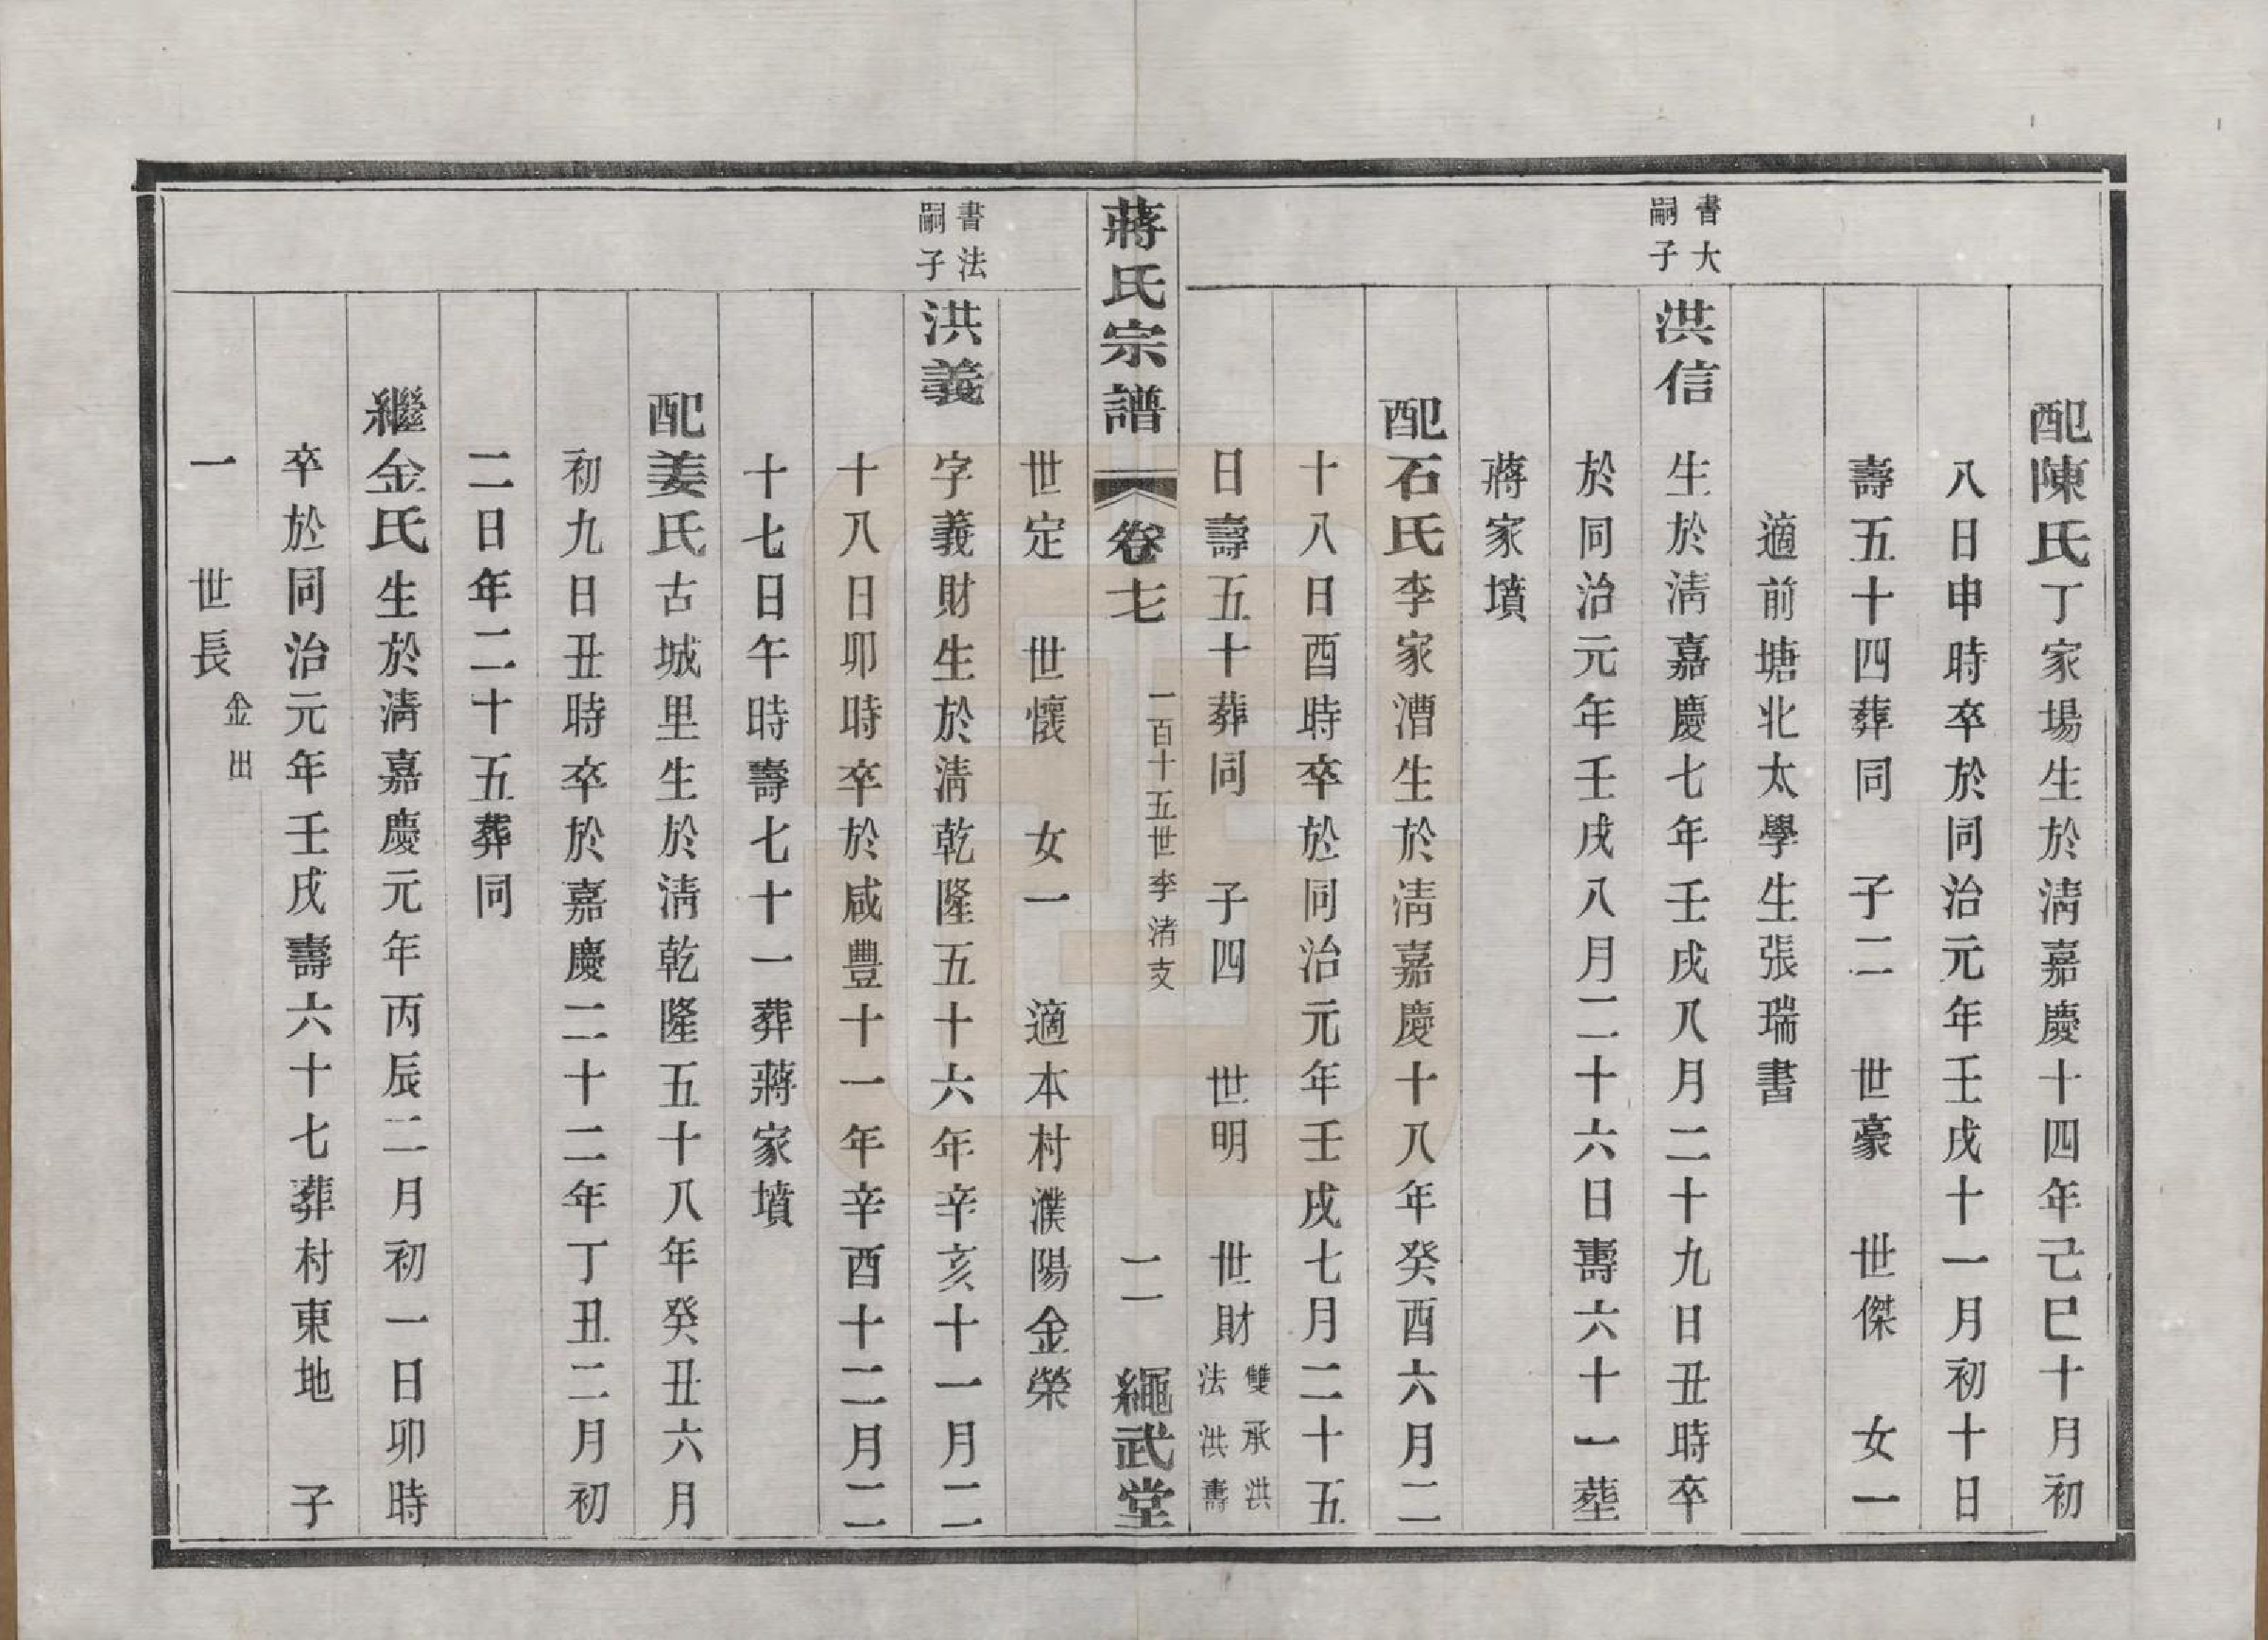 配陳氏丁家場生於淸嘉慶十四年己巳十月初
八日申時卒於同治元年壬戌十一月初十日
壽五十四葬同　子二　世豪　世傑　女一
適前塘北太學生張瑞書
書大嗣子
洪信　生於淸嘉慶七年壬戌八月二十九日丑時卒
於同治元年壬戌八月二十六日壽六十一葬
蔣家墳
配石氏李家漕生於淸嘉慶十八年癸酉六月二
十八日酉時卒於同治元年壬戌七月二十五
日壽五十葬同　子四　世明　世財雙承洪法洪壽
蔣氏宗譜　卷七　一百十五世李渚支　二　繩武堂
世定　世懷　女一　適本村濮陽金榮
書法嗣子
洪義　字義財生於淸乾隆五十六年辛亥十一月二
十八日卯時卒於咸豐十一年辛酉十二月二
十七日午時壽七十一葬蔣家墳
配姜氏古城里生於淸乾隆五十八年癸丑六月
初九日丑時卒於嘉慶二十二年丁丑二月初
二日年二十五葬同
繼金氏生於淸嘉慶元年丙辰二月初一日卯時
卒於同治元年壬戌壽六十七葬村東地　子
一　世長金出